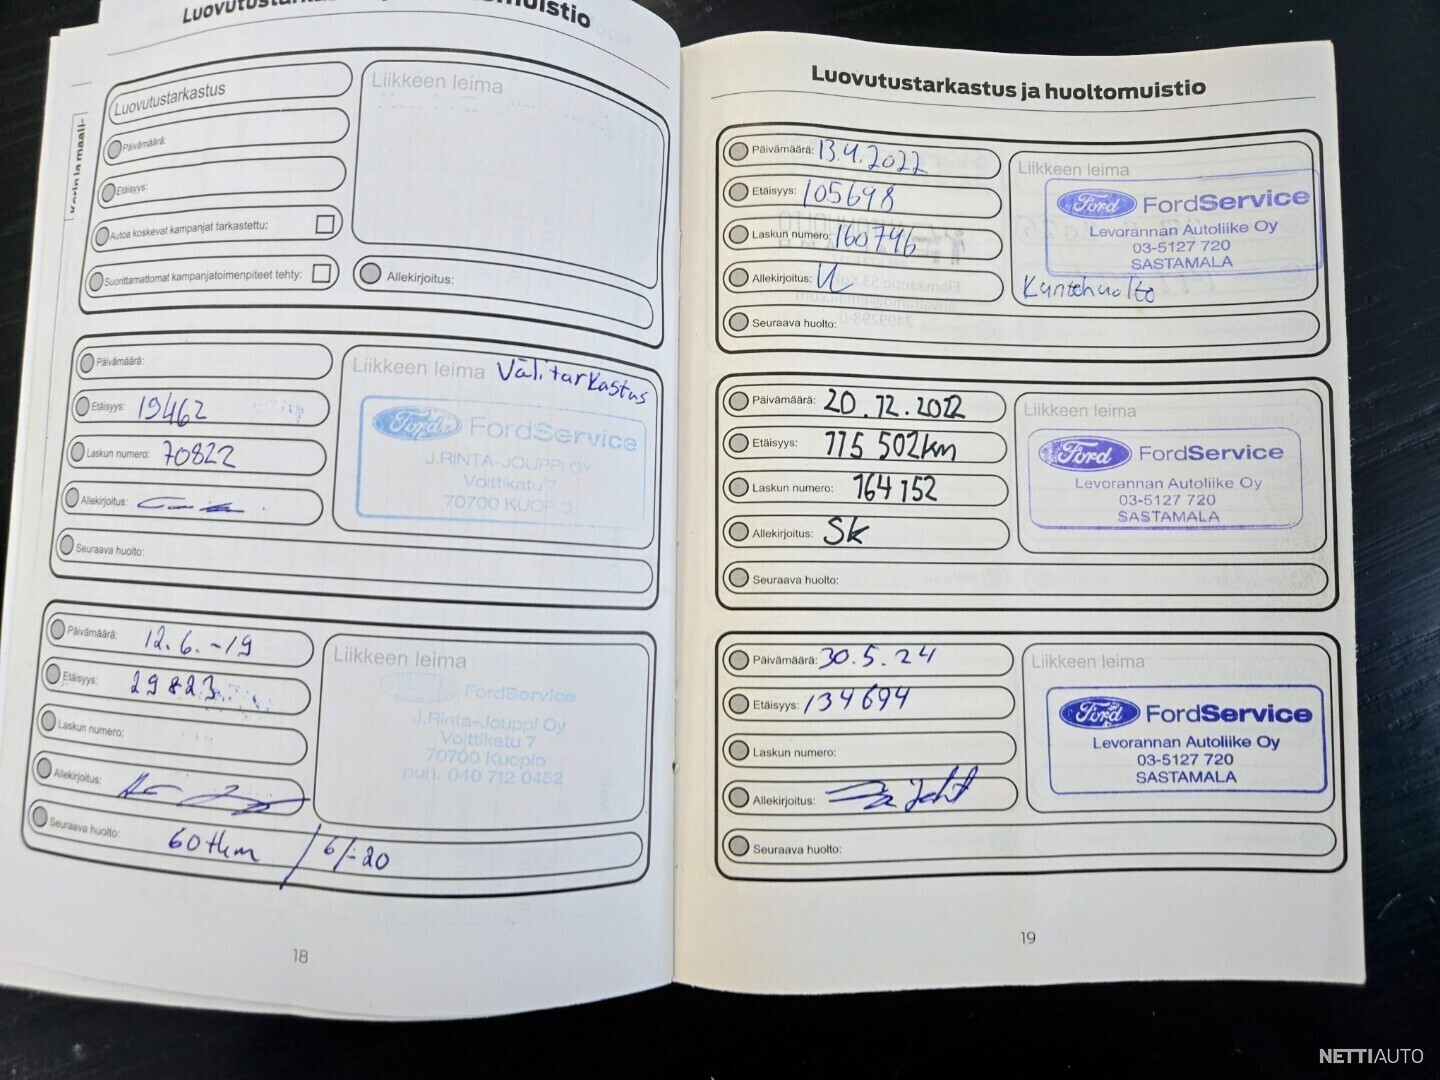 Luovutustarkastus
Liikkeen leima
Päivämäärä:
Etäisyys:
Autoa koskevat kampanjat tarkastettu:
Suorittamattomat kampanjatoimenpiteet tehty:
Allekirjoitus:
Korin ja maali-
Päivämäärä:
Etäisyys: 19462
Laskun numero: 70822
Allekirjoitus:
Seuraava huolto:
Liikkeen leima Välitarkastus
Ford FordService
J.RINTA-JOUPPI OY
Volttikatu 7
70700 KUOPIO
Päivämäärä: 12.6.-19
Etäisyys: 29823
Laskun numero:
Allekirjoitus:
Seuraava huolto: 60tkm / 6/-20
Liikkeen leima
FordService
J.Rinta-Jouppi Oy
Volttikatu 7
70700 Kuopio
puh. 040 712 0452
18
Luovutustarkastus ja huoltomuistio
Päivämäärä: 13.4.2022
Etäisyys: 105698
Laskun numero: 160746
Allekirjoitus:
Seuraava huolto:
Liikkeen leima
Ford FordService
Levorannan Autoliike Oy
03-5127 720
SASTAMALA
Kuntohuolto
Päivämäärä: 20.12.2022
Etäisyys: 115 502km
Laskun numero: 164152
Allekirjoitus: SK
Seuraava huolto:
Liikkeen leima
Ford FordService
Levorannan Autoliike Oy
03-5127 720
SASTAMALA
Päivämäärä: 30.5.24
Etäisyys: 134694
Laskun numero:
Allekirjoitus:
Seuraava huolto:
Liikkeen leima
Ford FordService
Levorannan Autoliike Oy
03-5127 720
SASTAMALA
19
NETTIAUTO